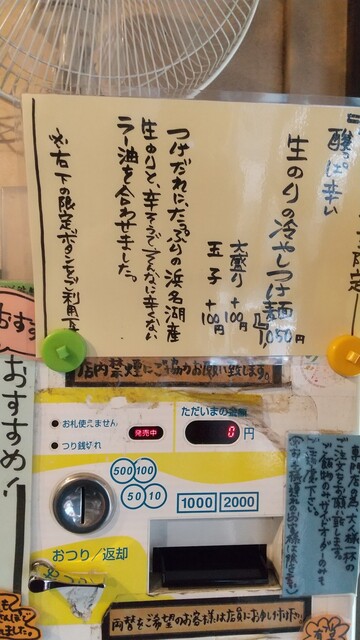 酸っぱ辛い
生のりの冷やしつけ麺
1,050円
大盛り +100円
玉子 +100円
つけだれに、たっぷりの浜名湖産
生のりと、辛そうでそんなに辛くない
ラー油を合わせました。
※右下の限定ボタンをご利用
おすす
店内禁煙にご協力お願い致します。
おすすめ!
お札使えません
つり銭切れ
発売中
ただいまの金額
0円
500 100
50 10
1000 2000
おつり/返却
両替をご希望のお客様は店員にお申し付け